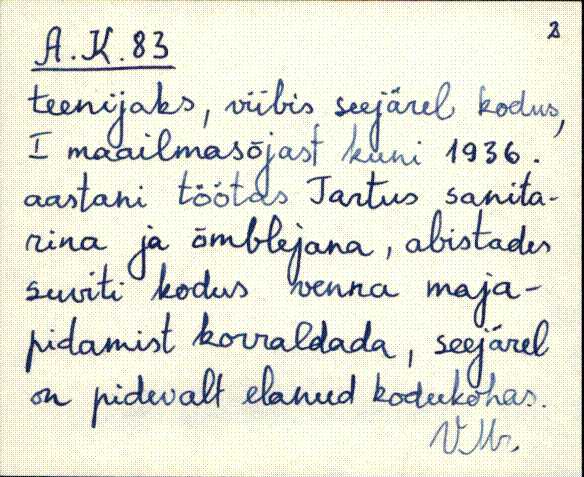 2
A.K.83
teenijaks, viibis seejärel kodus,
I maailmasõjast kuni 1936.
aastani töötas Tartus sanita-
rina ja õmblejana, abistades
suviti kodus venna maja-
pidamist korraldada, seejärel
on pidevalt elanud kodukohas.